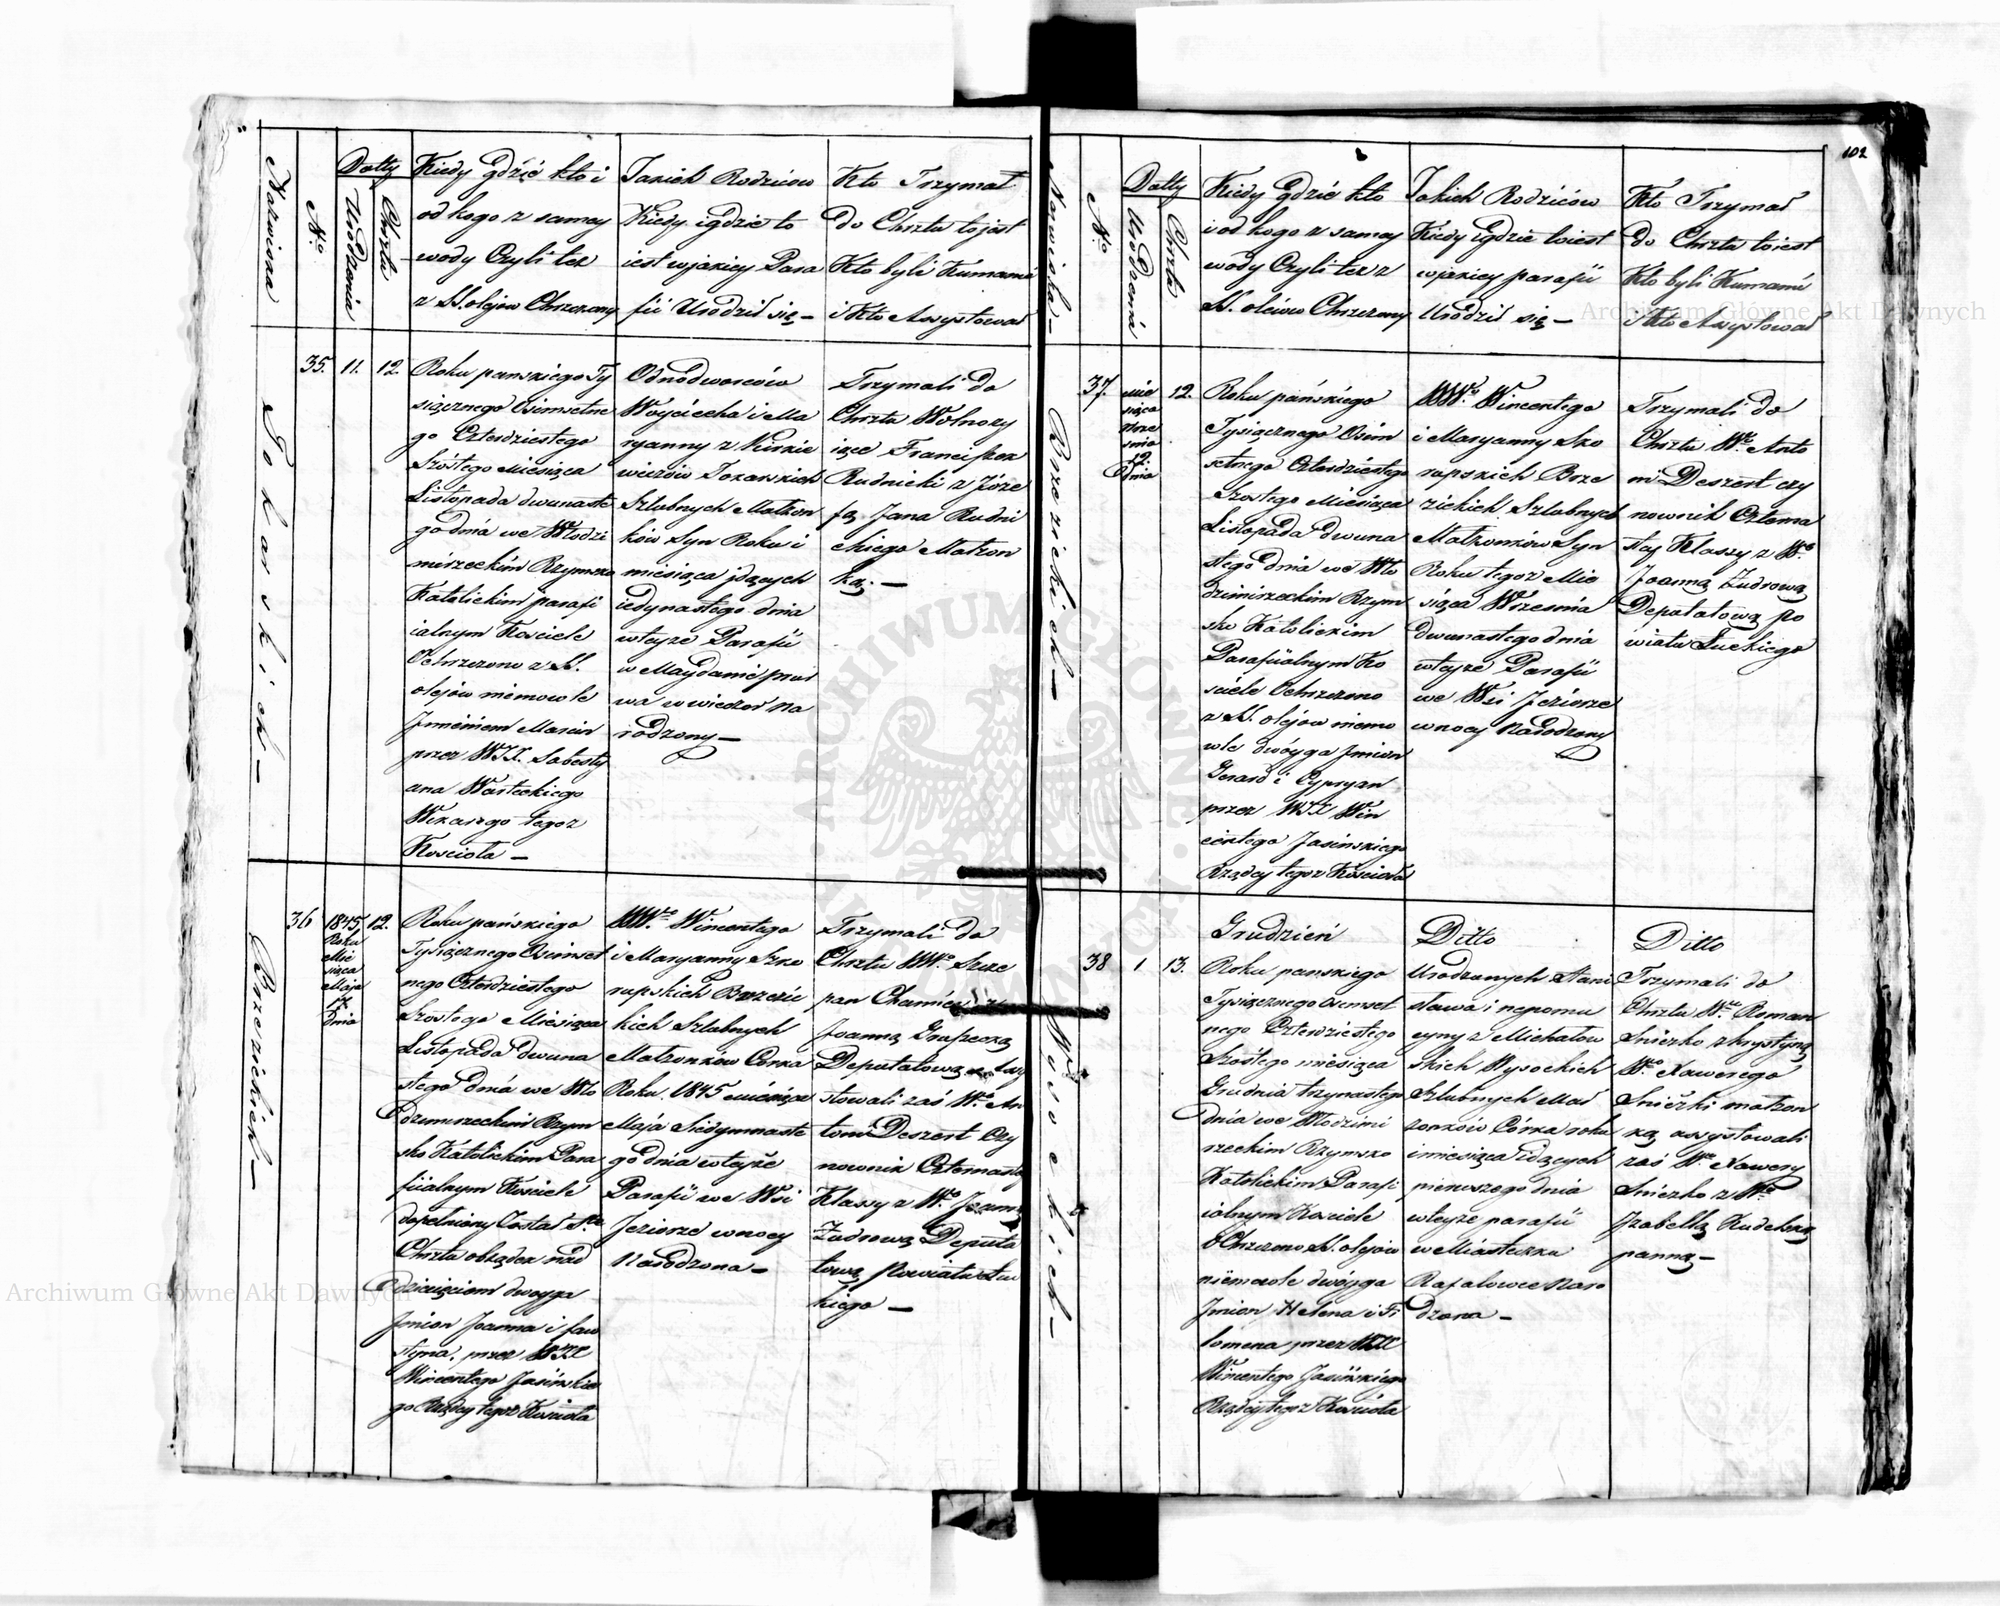 102
Nazwiska
No
Datty
Urodzenia
Chrztu
Kiedy gdzie kto i
od kogo z samey
wody Czyli tez
z SS. olejow Chrzczony
Jakich Rodzicow
Kiedy i gdzie to
iest w jakiey Para
fii Urodził się –
Kto Trzymał
do Chrztu to jest
Kto byli Kumami
i Kto Assystował
Tokarskich –
35.
11.
12.
Roku panskiego Ty
siącznego Osimsetne
go Czterdziestego
Szóstego Miesiąca
Listopada dwunaste
go dnia we Włodzi
mirzeckim Rzymsko
Katolickim parafi
ialnym Kosciele
Ochrzczono z SS.
olejów niemowle
Jmieniem Marcin
przez WJX. Sebesty
ana
Wikarego tegoz
Kosciola –
Odnodworców
Woyciecha i Ma
ryanny z
wiczów Tokarskich
Szlubnych Małzon
ków Syn Roku i
miesiąca idących
iedynastego dnia
w teyze Parafii
w Maydanie
wa w wieczor na
rodzony –
Trzymali do
Chrztu Wolnozy
iące Franciszek
Rudnicki z Józe
fą Jana Rudni
ckiego Małzon
ką. –
Brzezickich –
36
1845
Roku
Mie
siąca
Maja
17.
dnia
12.
Roku pańskiego
Tysiącznego Osimset
nego Czterdziestego
Szostego Miesiąca
Listopada dwuna
stego dnia we Wło
dzimirzeckim Rzym
sko Katolickim Para
fiialnym Kosciele
dopełniony Został Sgo
Chrztu obrządek nad
dziecięciem dwoyga
Jmion Joanna i Fau
styna. przez WJX
Wincentego Jasińskie
go Rządcy tegoz Kosciola
WWch Wincentego
i Maryanny Sko
rupskich Brzezic
kich Szlubnych
Małzonków Córka
Roku 1845 miesiąca
Maja Siedymnaste
go dnia w teyże
Parafii we Wsi
Jeziorze w nocy
Narodzona –
Trzymali do
Chrztu WWc Szcze
pan
Joanną
Deputatową assy
stowali zaś Wc An
toni Deszert Czy
nownik Czternastey
Klassy z Wą Joanną
Żudrową Deputa
tową Powiatu Łuc
kiego –
Nazwiska –
No
Datty
Urodzenia
Chrzta
Kiedy gdzie kto
i od kogo z samey
wody Czyli tez z
SS. oleiow Chrzczony
Jakich Rodziców
Kiedy i gdzie to iest
w jakiey parafii
Urodził się –
Kto Trzymał
do Chrztu to iest
Kto byli Kumami
i Kto Assystował
Brzezickich –
37.
mie
siąca
Wrze
śnia
12.
dnia
12.
Roku pańskiego
Tysiącznego Osim
setnego Czterdziestego
Szostego Miesiąca
Listopada dwuna
stego dnia we Wło
dzimirzeckim Rzym
sko Katolickim
Parafiialnym Ko
sciele Ochrzczono
z SS. olejow niemo
wle dwóyga Jmion
Gerard i Cypryan
przez WJX Win
centego Jasinskiego
Rządcy tegoz Kosciola
WWch Wincentego
i Maryanny Sko
rupskich Brze
zickich Szlubnych
Małzonków Syn
Roku tegoz Mie
siąca Wrzesnia
dwunastego dnia
w teyze Parafii
we Wsi Jeziorze
w nocy Narodzony
Trzymali do
Chrztu Wc Anto
ni Deszert czy
nownik Czterna
stey Klassy z Wą
Joanną Żudrową
Deputatową po
wiatu Łuckiego
Wysockich –
Grudzień
Ditto
Ditto
38
1
13.
Roku panskiego
Tysiącznego Osimset
nego Czterdziestego
Szóstego miesiąca
Grudnia trzynastego
dnia we Włodzimi
rzeckim Rzymsko
Katolickim Parafi
ialnym Kosciele
OChrzczono SS. olejow
niemowle dwóyga
Jmion Helena i Fi
lomena przez WJX
Wincentego Jasińskiego
Rządcy tegoz Kosciola
Urodzonych Stani
sława i nepomu
cyny z Michałow
skich Wysockich
Szlubnych Mał
zonków Córka roku
i miesiąca idących
pierwszego dnia
w teyże parafii
w Miasteczku
Rafałowce naro
dzona –
Trzymali do
Chrztu Wc Roman
Snieżko z krystyną
Wo Xawerego
Snieżki małzon
ką assystowali
zaś Wc Xawery
Snieżko z Wą
Jzabellą
panną –
Archiwum Główne Akt Dawnych
Archiwum Główne Akt Dawnych
ARCHIWUM GŁÓWNE AKT DAWNYCH